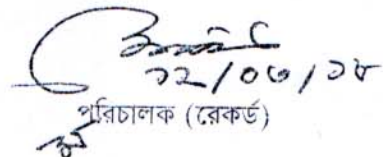 ১২/০৩/১৮
পরিচালক (রেকর্ড)